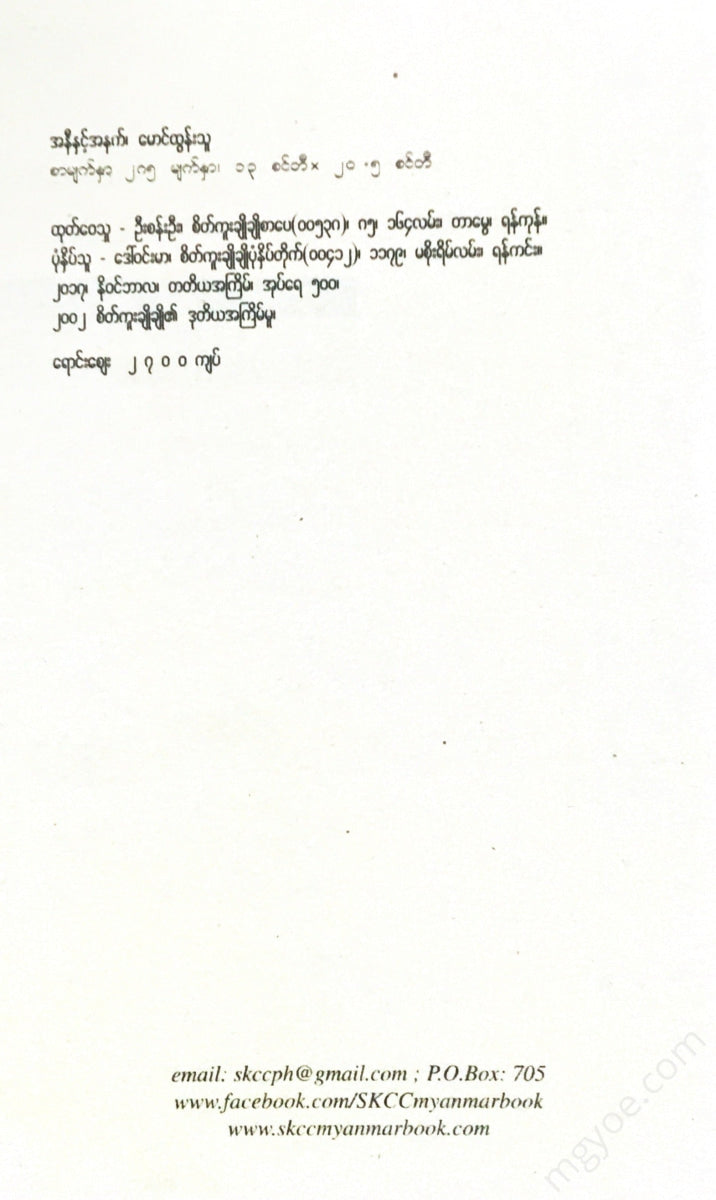 အနီနှင့်အနက်၊ မောင်ထွန်းသူ
စာမျက်နှာ ၂၈၅ မျက်နှာ၊ ၁၃ စင်တီ× ၂၀ .၅ စင်တီ
ထုတ်ဝေသူ - ဦးစန်းဦး၊ စိတ်ကူးချိုချိုစာပေ(၀၀၅၃၈)၊ ၈၅၊ ၁၆၄လမ်း၊ တာမွေ၊ ရန်ကုန်။
ပုံနှိပ်သူ - ဒေါ်ဝင်းမာ၊ စိတ်ကူးချိုချိုပုံနှိပ်တိုက်(၀၀၄၁၂)၊ ၁၁၇၉၊ မစိုးရိမ်လမ်း၊ ရန်ကင်း။
၂၀၁၇၊ နိုဝင်ဘာလ၊ တတိယအကြိမ်၊ အုပ်ရေ ၅၀၀၊
၂၀၀၂ စိတ်ကူးချိုချို၏ ဒုတိယအကြိမ်မူ၊
ရောင်းဈေး ၂ ၇ ၀ ၀ ကျပ်
email: skccph@gmail.com ; P.O.Box: 705
www.facebook.com/SKCCmyanmarbook
www.skccmyanmarbook.com
mgyoe.com